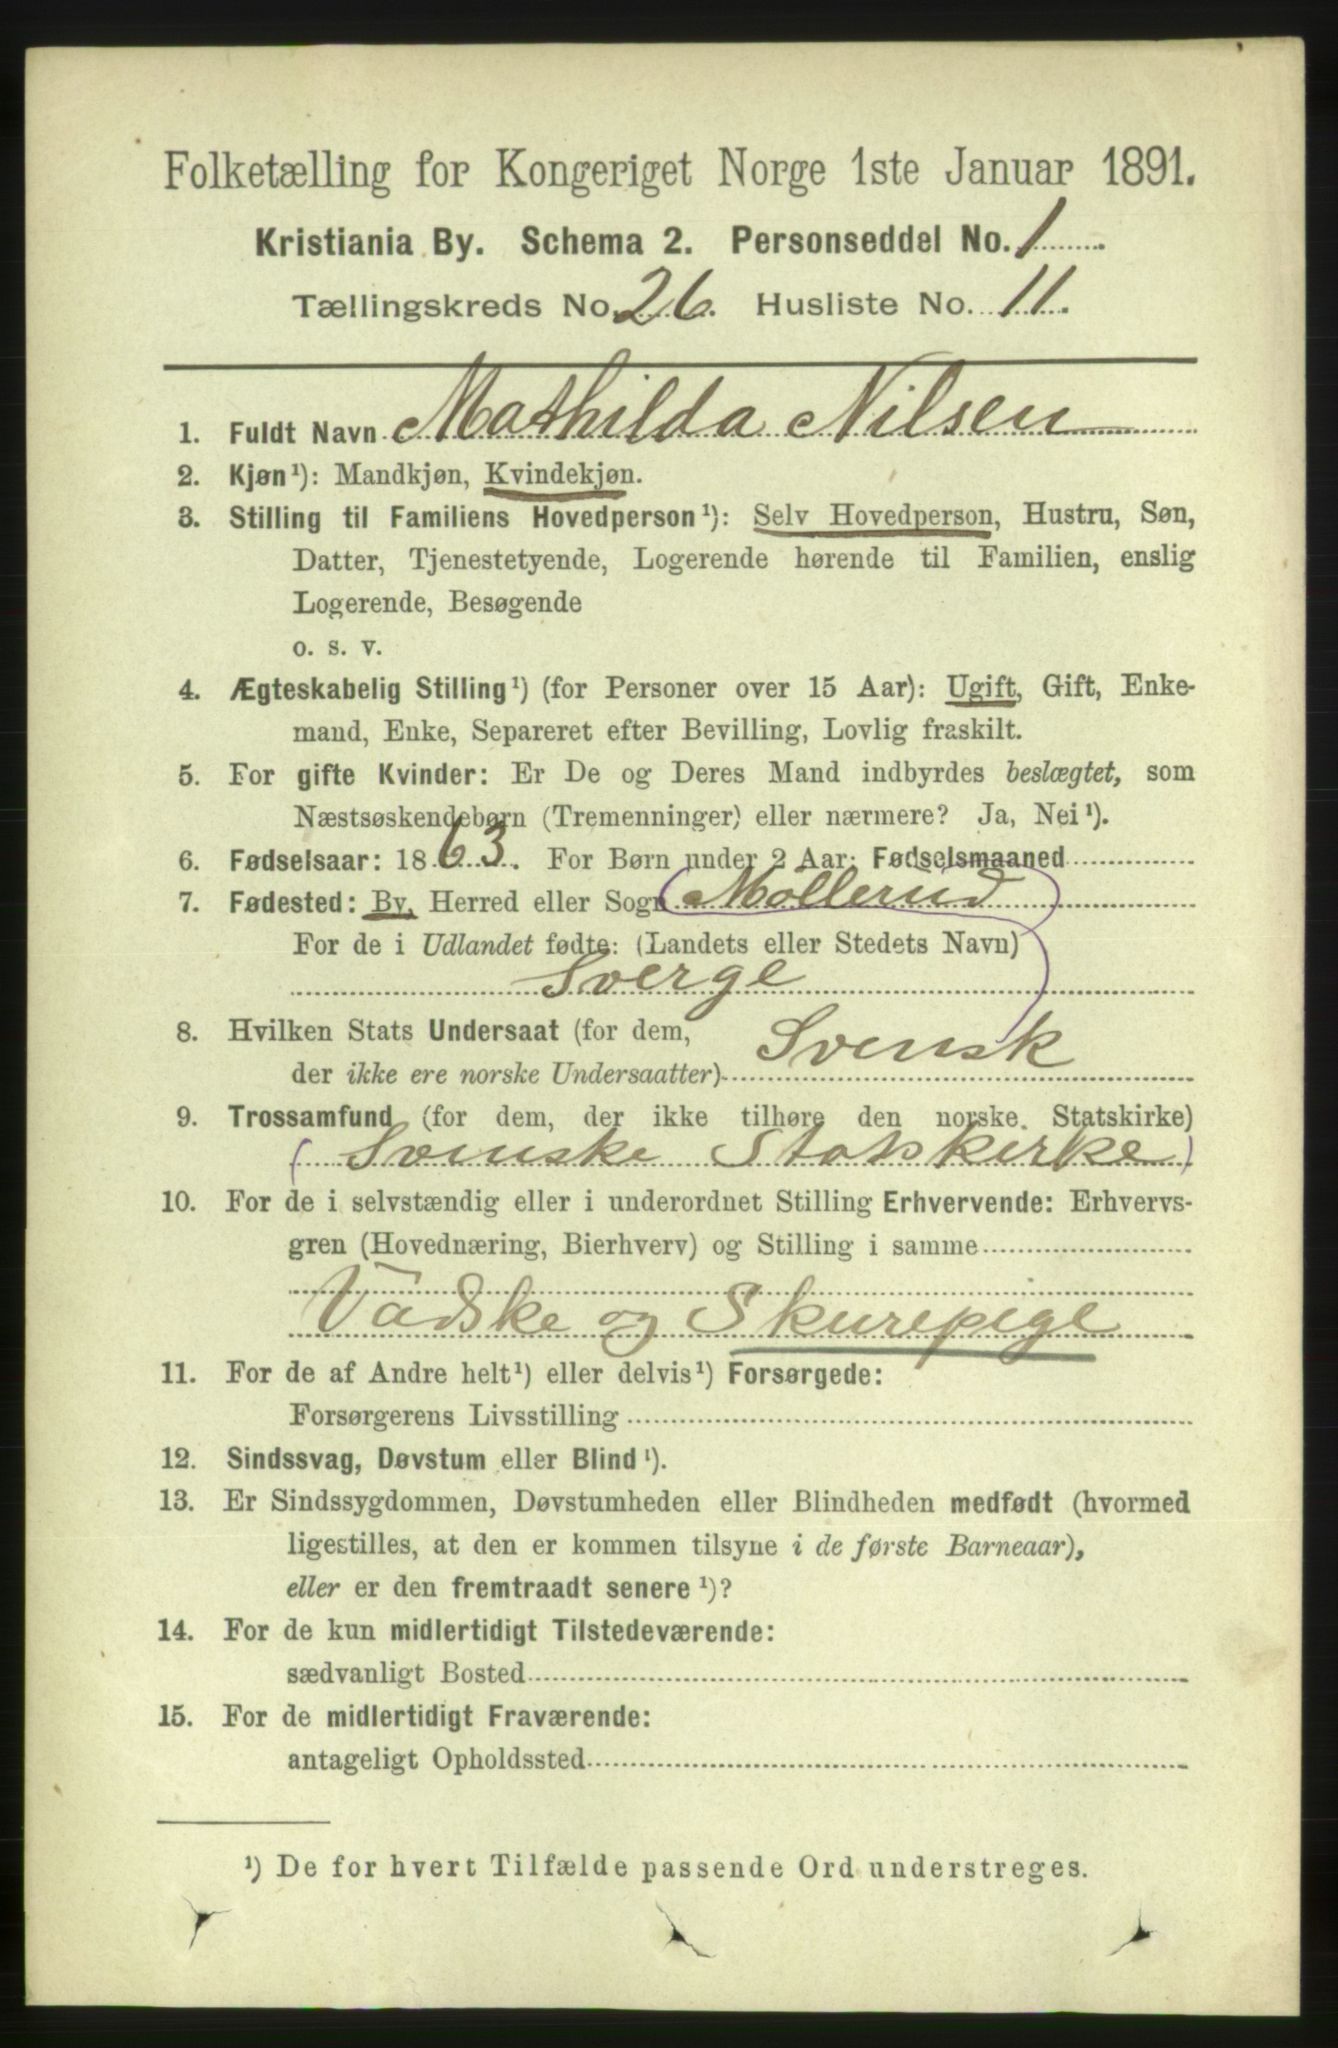 Folketælling for Kongeriget Norge 1ste Januar 1891.
Kristiania By. Schema 2. Personseddel No. 1
Tællingskreds No. 26. Husliste No. 11.
1. Fuldt Navn Mathilda Nilsen
2. Kjøn¹): Mandkjøn, Kvindekjøn.
3. Stilling til Familiens Hovedperson¹): Selv Hovedperson, Hustru, Søn,
Datter, Tjenestetyende, Logerende hørende til Familien, enslig
Logerende, Besøgende
o. s. v.
4. Ægteskabelig Stilling¹) (for Personer over 15 Aar): Ugift, Gift, Enke-
mand, Enke, Separeret efter Bevilling, Lovlig fraskilt.
5. For gifte Kvinder: Er De og Deres Mand indbyrdes beslægtet, som
Næstsøskendebørn (Tremenninger) eller nærmere? Ja, Nei¹).
6. Fødselsaar: 1863. For Børn under 2 Aar: Fødselsmaaned
7. Fødested: By, Herred eller Sogn Möllerud
For de i Udlandet fødte: (Landets eller Stedets Navn)
Sverge
8. Hvilken Stats Undersaat (for dem,
der ikke ere norske Undersaatter) Svensk
9. Trossamfund (for dem, der ikke tilhøre den norske Statskirke)
(Svenske Statskirke)
10. For de i selvstændig eller i underordnet Stilling Erhvervende: Erhvervs-
gren (Hovednæring, Bierhverv) og Stilling i samme
Vadske og Skurepige
11. For de af Andre helt¹) eller delvis¹) Forsørgede:
Forsørgerens Livsstilling
12. Sindssvag, Døvstum eller Blind¹).
13. Er Sindssygdommen, Døvstumheden eller Blindheden medfødt (hvormed
ligestilles, at den er kommen tilsyne i de første Barneaar),
eller er den fremtraadt senere¹)?
14. For de kun midlertidigt Tilstedeværende:
sædvanligt Bosted
15. For de midlertidigt Fraværende:
antageligt Opholdssted
¹) De for hvert Tilfælde passende Ord understreges.